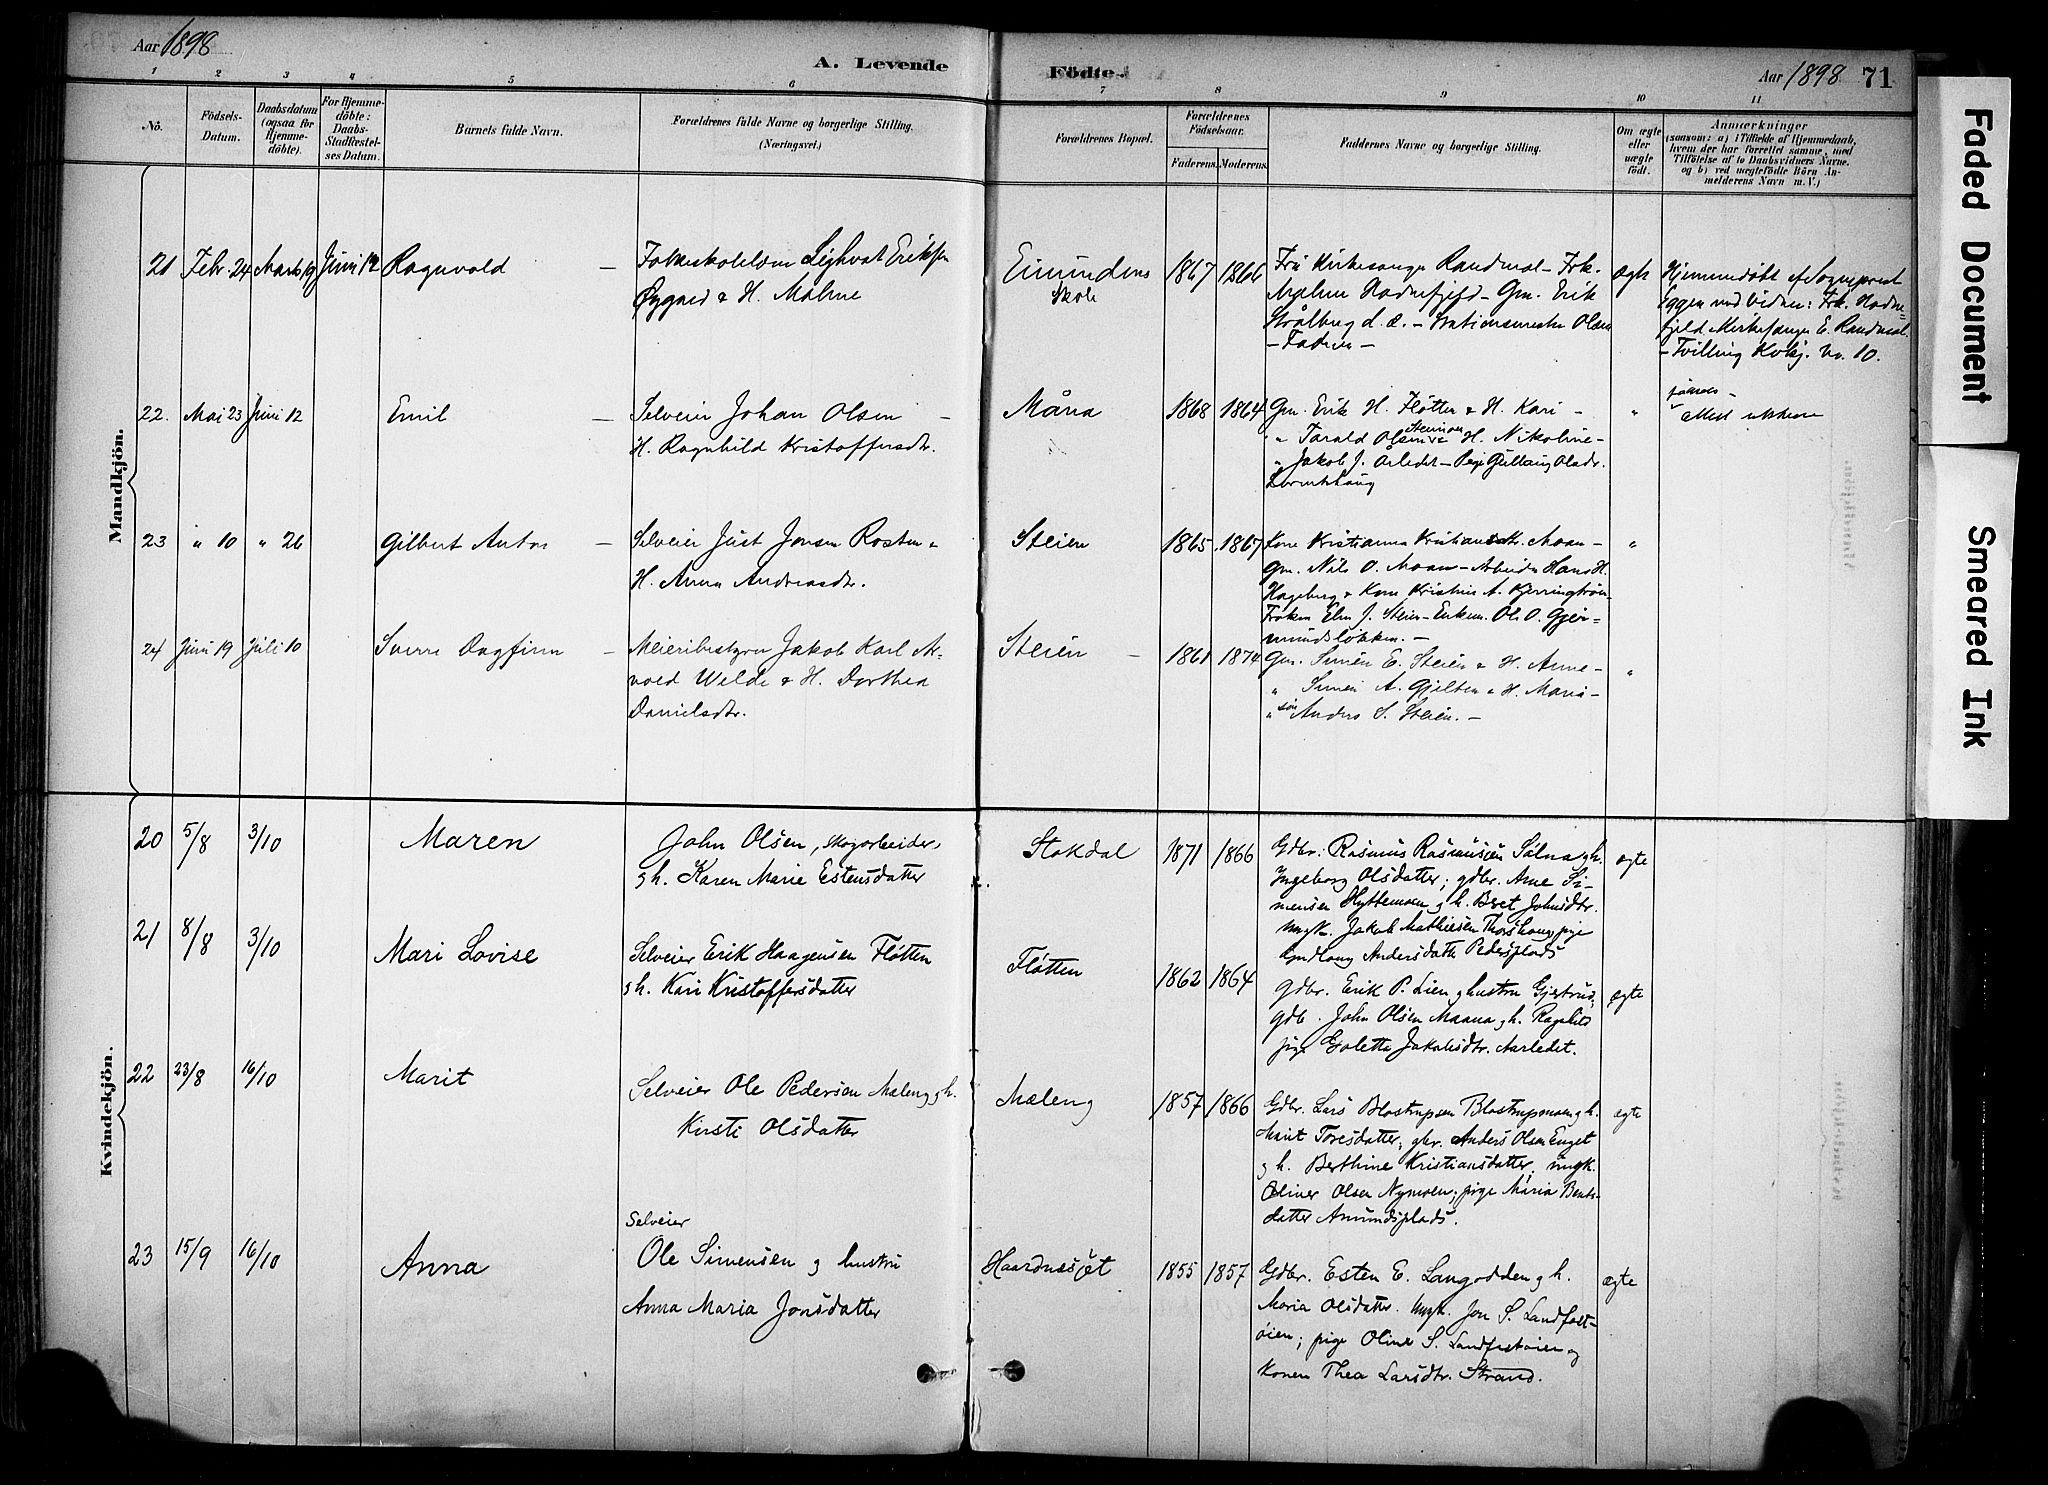 Aar 1898
A. Levende Födte.
Aar 1898 71
1 2 3 4 5 6 7 8 9 10 11
Nö.
Födsels-Datum.
Daabsdatum (ogsaa for Hjemme-döbte).
For Hjemme-döbte: Daabs-Stadfæstel-ses Datum.
Barnets fulde Navn.
Forældrenes fulde Navne og borgerlige Stilling. (Næringsvei.)
Forældrenes Bopæl.
Forældrenes Födselsaar.
Faderens. Moderens.
Faddernes Navne og borgerlige Stilling.
Om ægte eller uægte födt.
Anmærkninger
(saasom: a) i Tilfælde af Hjemmedaab,
hvem der har forrettet samme, med
Tilföielse af to Daabsvidners Navne.
og b) ved uægtefödte Börn An-
melderens Navn m. V.)
Mandkjön.
21 Febr. 24 Marts 19 Juni 12 Ragnvald — Folkeskolelærer Sighvat Eriksen
Øygard & H. Malene
Eimundens Skole
1867 1866
Fru Kirkesanger Randmæl – Frk.
Malene Hadnefjeld – Gm. Erik
Strålberg d. æ. – Stationsmester Olsen
– Faderen –
ægte
Hjemmedøbt af Sogneprest
Eggen med Vidner: Frk. Hadne-
fjeld Kirkesanger E. Randmæl.
– Tvilling Kvkj. No. 10.
22. Mai 23 Juni 12 Emil — Selveier Johan Olsen –
H. Ragnhild Kristoffersdtr.
Måna
1868 1864
Gm. Erik H. Fløtten & H. Kari –
" Tarald Olsen Steinmoen & H. Nikoline –
" Jakob J. Årledet – Pige Gullaug Olsdr.
"
23 " 10 " 26 Gilbert Anton — Selveier Just Jonsen Rosten &
H. Anna Andreasdtr.
Steien
1865 1867
Kone Kristianna Kristiansdtr. Moan –
Gm. Nils O. Moan – Arbeider Hans H.
Hageberg & Kone Kristine A. Kjerringtrøen
Frøken Elen J. Steien – Enkem. Ole O. Gjer-
mundsløkken. –
"
24 Juni 19 Juli 10 Sverre Dagfinn — Meieribestyrer Jakob Karl Ar-
vold Welde & H. Dorthea
Danielsdtr.
Steien –
1861 1874
Gm. Simen E. Steien & H. Anne –
" Simen A. Gjelten & H. Mari –
" søn Anders S. Steien. –
"
Kvindekjön.
20 5/8 3/10 Maren John Olsen, skogarbeider,
g h. Karen Marie Estensdatter
Stokdal
1871 1866
Gdbr. Rasmus Rasmussen Sølna g h.
Ingeborg Olsdatter; gdbr. Arne Si-
mensen Hyttemoen g h. Beret Johnsdtr.
Ungk. Jakob Mathiesen Thorshaug, pige
Gundlaug Andersdatter Pedersplads
ægte
21 8/8 3/10 Mari Lovise Selveier Erik Haagensen Fløtten
g h. Kari Kristoffersdatter
Fløtten
1862 1864
Gdbr. Erik P. Lien g hustru Gjertrud,
gdb. John Olsen Maana g h. Ragnhild
pige Goletta Jakobsdtr. Aarledet.
ægte
22 23/8 16/10 Marit Selveier Ole Pedersen Mæleng g h.
Kirsti Olsdatter
Mæleng
1857 1866
Gdbr. Lars Blostrupsen Blostrupmoen g h.
Marit Toresdatter, gbr. Anders Olsen Enget
g h. Berthine Kristiansdatter, ungk.
Oliver Olsen Nymoen; pige Maria Bents-
datter Amundsplads.
ægte
23 15/9 16/10 Anna Selveier
Ole Simensen g hustru
Anna Maria Jonsdatter
Haardnæsjøt
1855 1857
Gdbr. Esten E. Langodden g h.
Maria Olsdatter. Ungk. Jon S. Landfast-
øien; pige Oline S. Landfastøien g
konen Thea Larsdtr. Strand.
ægte
Faded Document
Smeared Ink